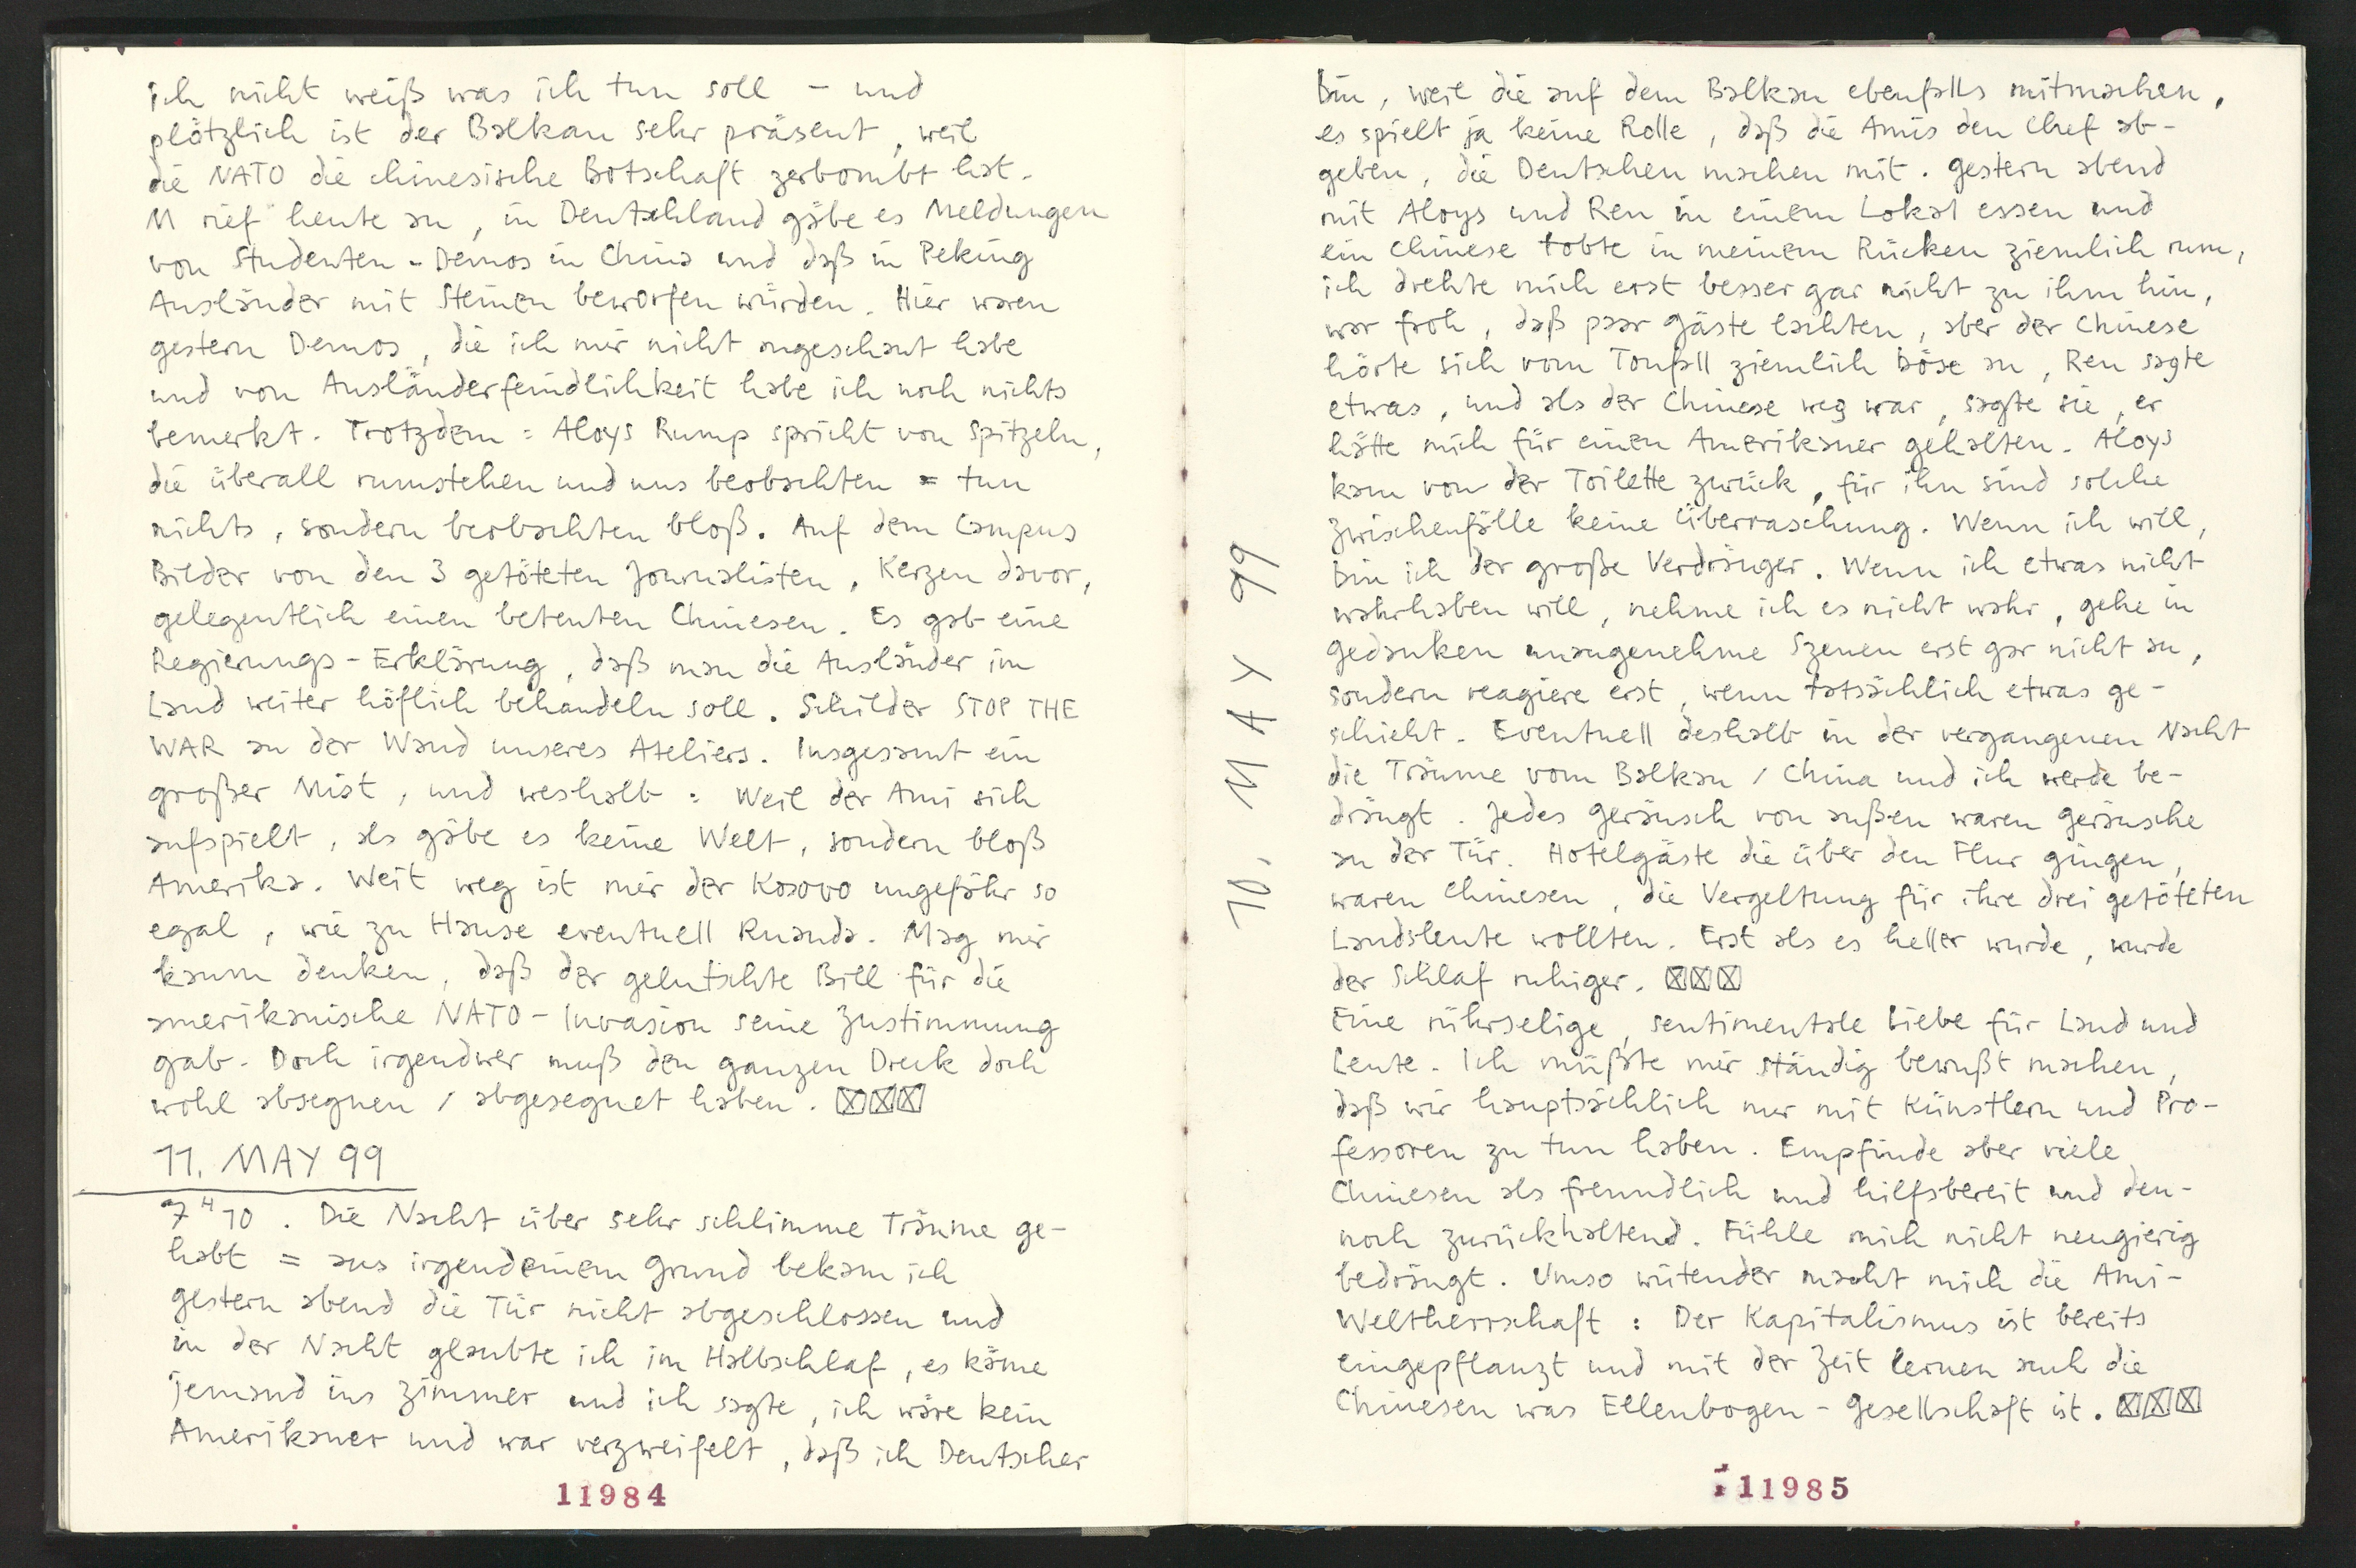 ich nicht weiß was ich tun soll – und
plötzlich ist der Balkan sehr präsent, weil
die NATO die chinesische Botschaft zerbombt hat.
M rief heute an, in Deutschland gäbe es Meldungen
von Studenten-Demos in China und daß in Peking
Ausländer mit Steinen beworfen würden. Hier waren
gestern Demos, die ich mir nicht angeschaut habe
und von Ausländerfeindlichkeit habe ich noch nichts
bemerkt. Trotzdem = Aloys Rump spricht von Spitzeln,
die überall rumstehen und uns beobachten = tun
nichts, sondern beobachten bloß. Auf dem Campus
Bilder von den 3 getöteten Journalisten, Kerzen davor,
gelegentlich einen betenten Chinesen. Es gab eine
Regierungs-Erklärung, daß man die Ausländer im
Land weiter höflich behandeln soll. Schilder STOP THE
WAR an der Wand unseres Ateliers. Insgesamt ein
großer Mist, und weshalb: Weil der Ami sich
aufspielt, als gäbe es keine Welt, sondern bloß
Amerika. Weit weg ist mir der Kosovo ungefähr so
egal, wie zu Hause eventuell Ruanda. Mag mir
kaum denken, daß der gelutschte Bill für die
amerikanische NATO-Invasion seine Zustimmung
gab. Doch irgendwer muß den ganzen Dreck doch
wohl absegnen / abgesegnet haben.
11. MAY 99
7 H 10. Die Nacht über sehr schlimme Träume ge-
habt = aus irgendeinem Grund bekam ich
gestern abend die Tür nicht abgeschlossen und
in der Nacht glaubte ich im Halbschlaf, es käme
jemand ins Zimmer und ich sagte, ich wäre kein
Amerikaner und war verzweifelt, daß ich Deutscher
11984
10. MAY 99
bin, weil die auf dem Balkan ebenfalls mitmachen,
es spielt ja keine Rolle, daß die Amis den Chef ab-
geben, die Deutschen machen mit. Gestern abend
mit Aloys und Ren in einem Lokal essen und
ein Chinese tobte in meinem Rücken ziemlich rum,
ich drehte mich erst besser gar nicht zu ihm hin,
war froh, daß paar Gäste lachten, aber der Chinese
hörte sich vom Tonfall ziemlich böse an, Ren sagte
etwas, und als der Chinese weg war, sagte sie, er
hätte mich für einen Amerikaner gehalten. Aloys
kam von der Toilette zurück, für ihn sind solche
Zwischenfälle keine Überraschung. Wenn ich will,
bin ich der große Verdränger. Wenn ich etwas nicht
wahrhaben will, nehme ich es nicht wahr, gehe in
Gedanken unangenehme Szenen erst gar nicht an,
sondern reagiere erst, wenn tatsächlich etwas ge-
schieht. Eventuell deshalb in der vergangenen Nacht
die Träume vom Balkan / China und ich werde be-
drängt. Jedes Geräusch von außen waren Geräusche
an der Tür. Hotelgäste die über den Flur gingen,
waren Chinesen, die Vergeltung für ihre drei getöteten
Landsleute wollten. Erst als es heller wurde, wurde
der Schlaf ruhiger.
Eine rührselige, sentimentale Liebe für Land und
Leute. Ich müßte mir ständig bewußt machen,
daß wir hauptsächlich nur mit Künstlern und Pro-
fessoren zu tun haben. Empfinde aber viele
Chinesen als freundlich und hilfsbereit und den-
noch zurückhaltend. Fühle mich nicht neugierig
bedrängt. Umso wütender macht mich die Ami-
Weltherrschaft: Der Kapitalismus ist bereits
eingepflanzt und mit der Zeit lernen auch die
Chinesen was Ellenbogen-Gesellschaft ist.
11985